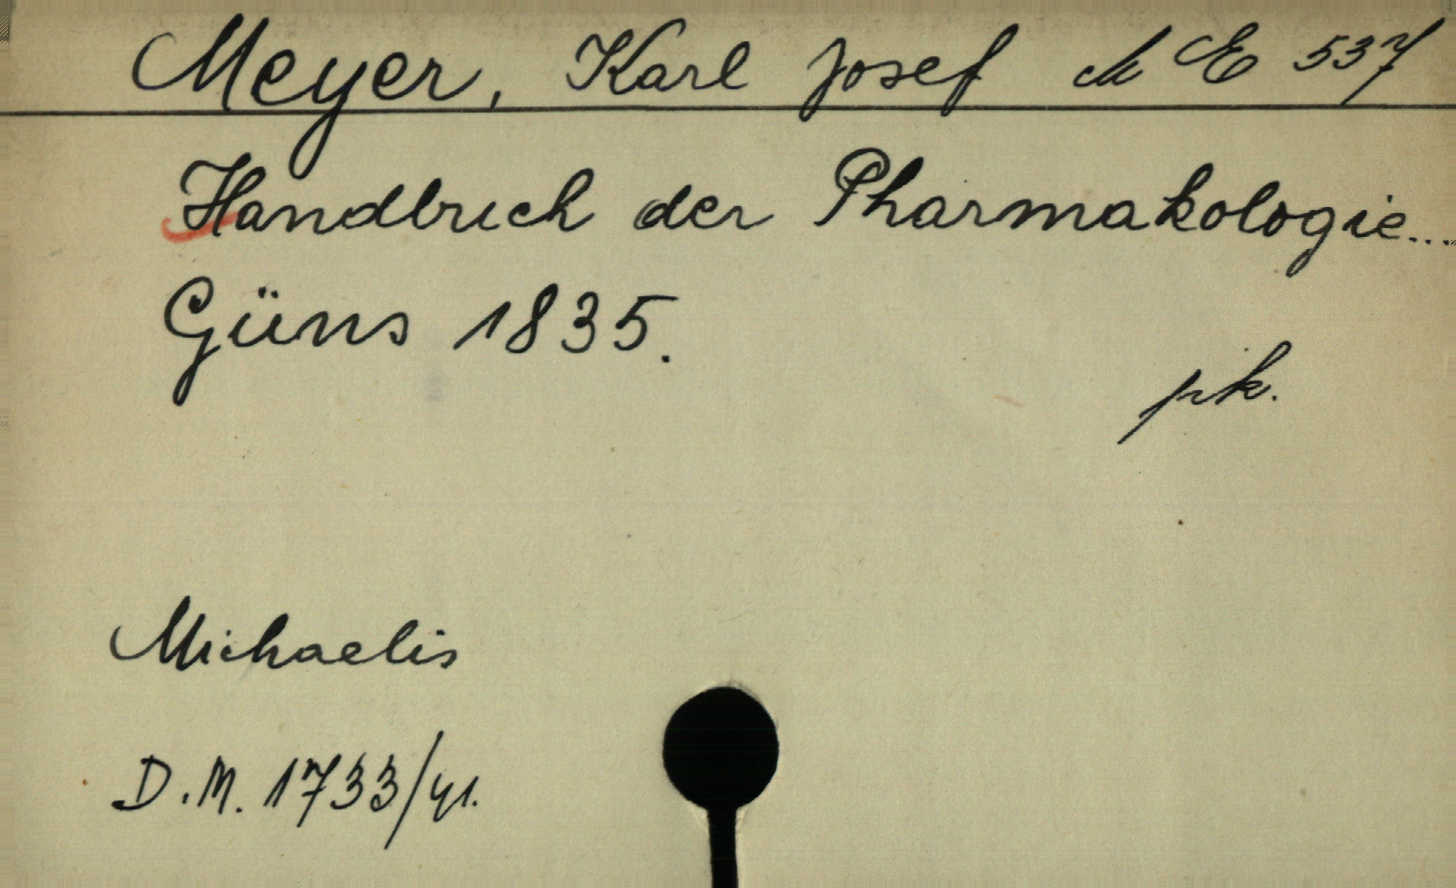 Meyer, Karl Josef M E 537
Handbuch der Pharmakologie...
Güns 1835.
pk.
Michaelis
D.M. 1733/41.